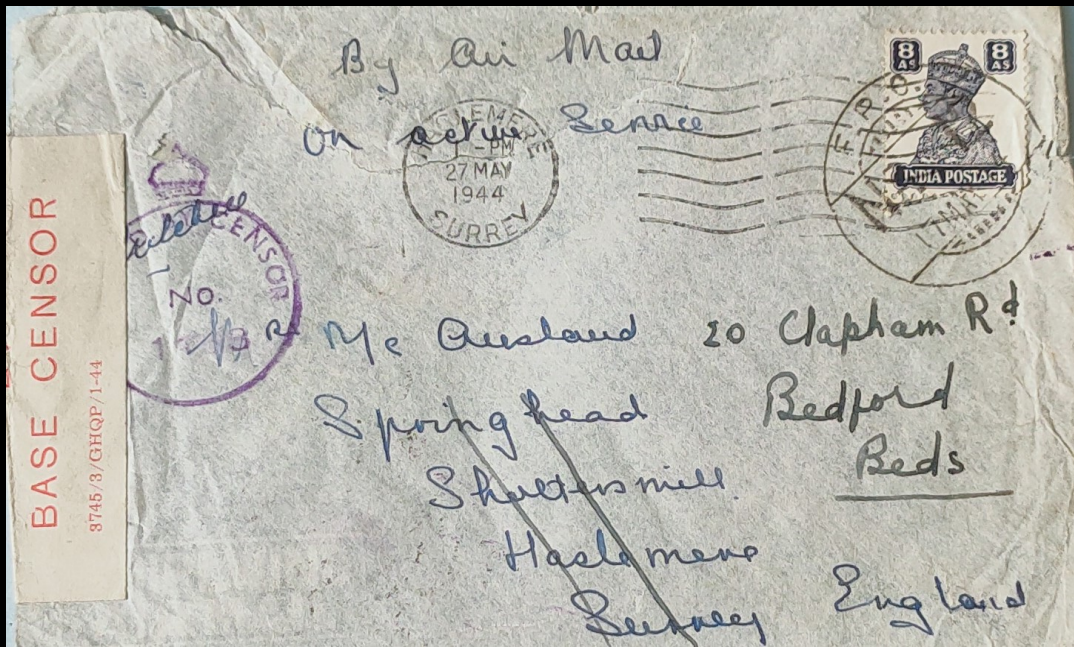 By Air Mail
On active Service
HASLEMERE
1 - PM
27 MAY
1944
SURREY
8 AS 8 AS
INDIA POSTAGE
F.P.O.
17 MAY
BASE CENSOR
3745/3/GHQP/1-44
CENSOR
No.
Mc Ausland
Springhead
Shottermill
Haslemere
Surrey
England
20 Clapham Rd
Bedford
Beds